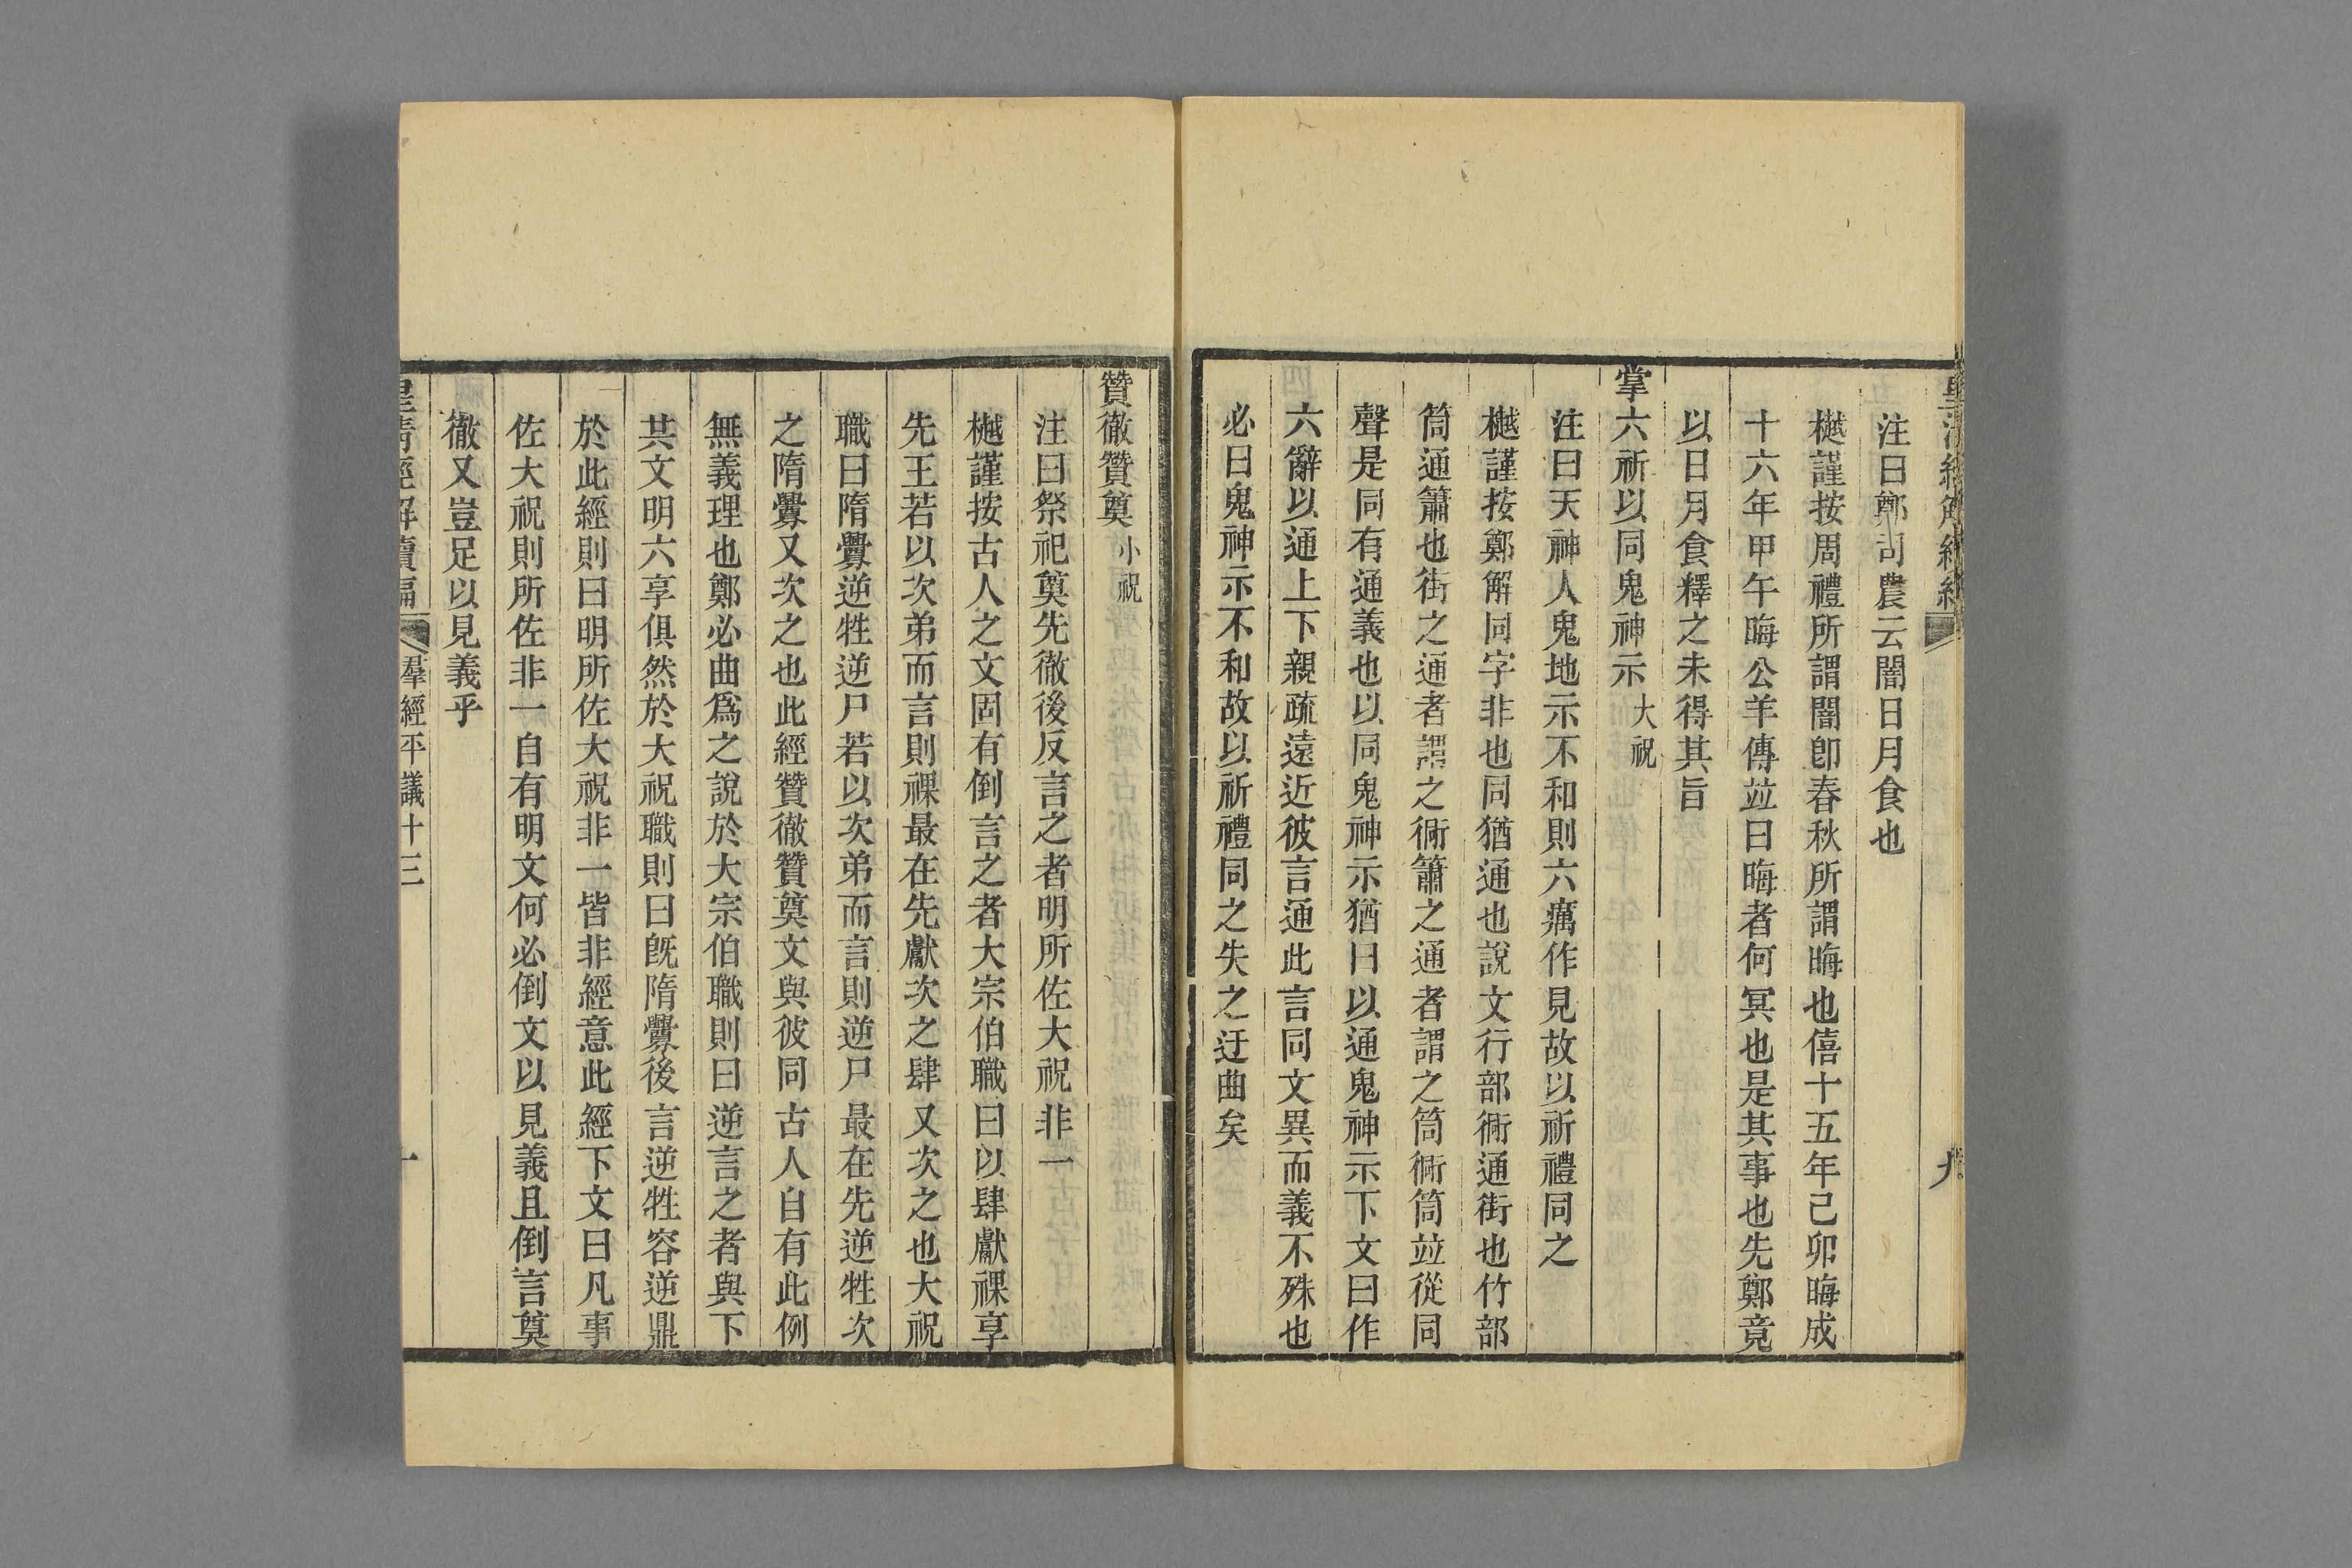 注曰鄭司農云闇日月食也
樾謹按周禮所謂闇卽春秋所謂晦也僖十五年己卯晦成
十六年甲午晦公羊傳竝曰晦者何冥也是其事也先鄭竟
以日月食釋之未得其旨
掌六祈以同鬼神示 大祝
注曰天神人鬼地示不和則六癘作見故以祈禮同之
樾謹按鄭解同字非也同猶通也說文行部衕通街也竹部
筒通簫也街之通者謂之衕簫之通者謂之筒衕筒竝從同
聲是同有通義也以同鬼神示猶曰以通鬼神示下文曰作
六辭以通上下親疏遠近彼言通此言同文異而義不殊也
必曰鬼神示不和故以祈禮同之失之迂曲矣
贊徹贊奠 小祝
注曰祭祀奠先徹後反言之者明所佐大祝非一
樾謹按古人之文固有倒言之者大宗伯職曰以肆獻祼享
先王若以次弟而言則祼最在先獻次之肆又次之也大祝
職曰隋釁逆牲逆尸若以次弟而言則逆尸最在先逆牲次
之隋釁又次之也此經贊徹贊奠文與彼同古人自有此例
無義理也鄭必曲爲之說於大宗伯職則曰逆言之者與下
共文明六享俱然於大祝職則曰旣隋釁後言逆牲容逆鼎
於此經則曰明所佐大祝非一皆非經意此經下文曰凡事
佐大祝則所佐非一自有明文何必倒文以見義且倒言奠
徹又豈足以見義乎
皇清經解續編 羣經平議十三